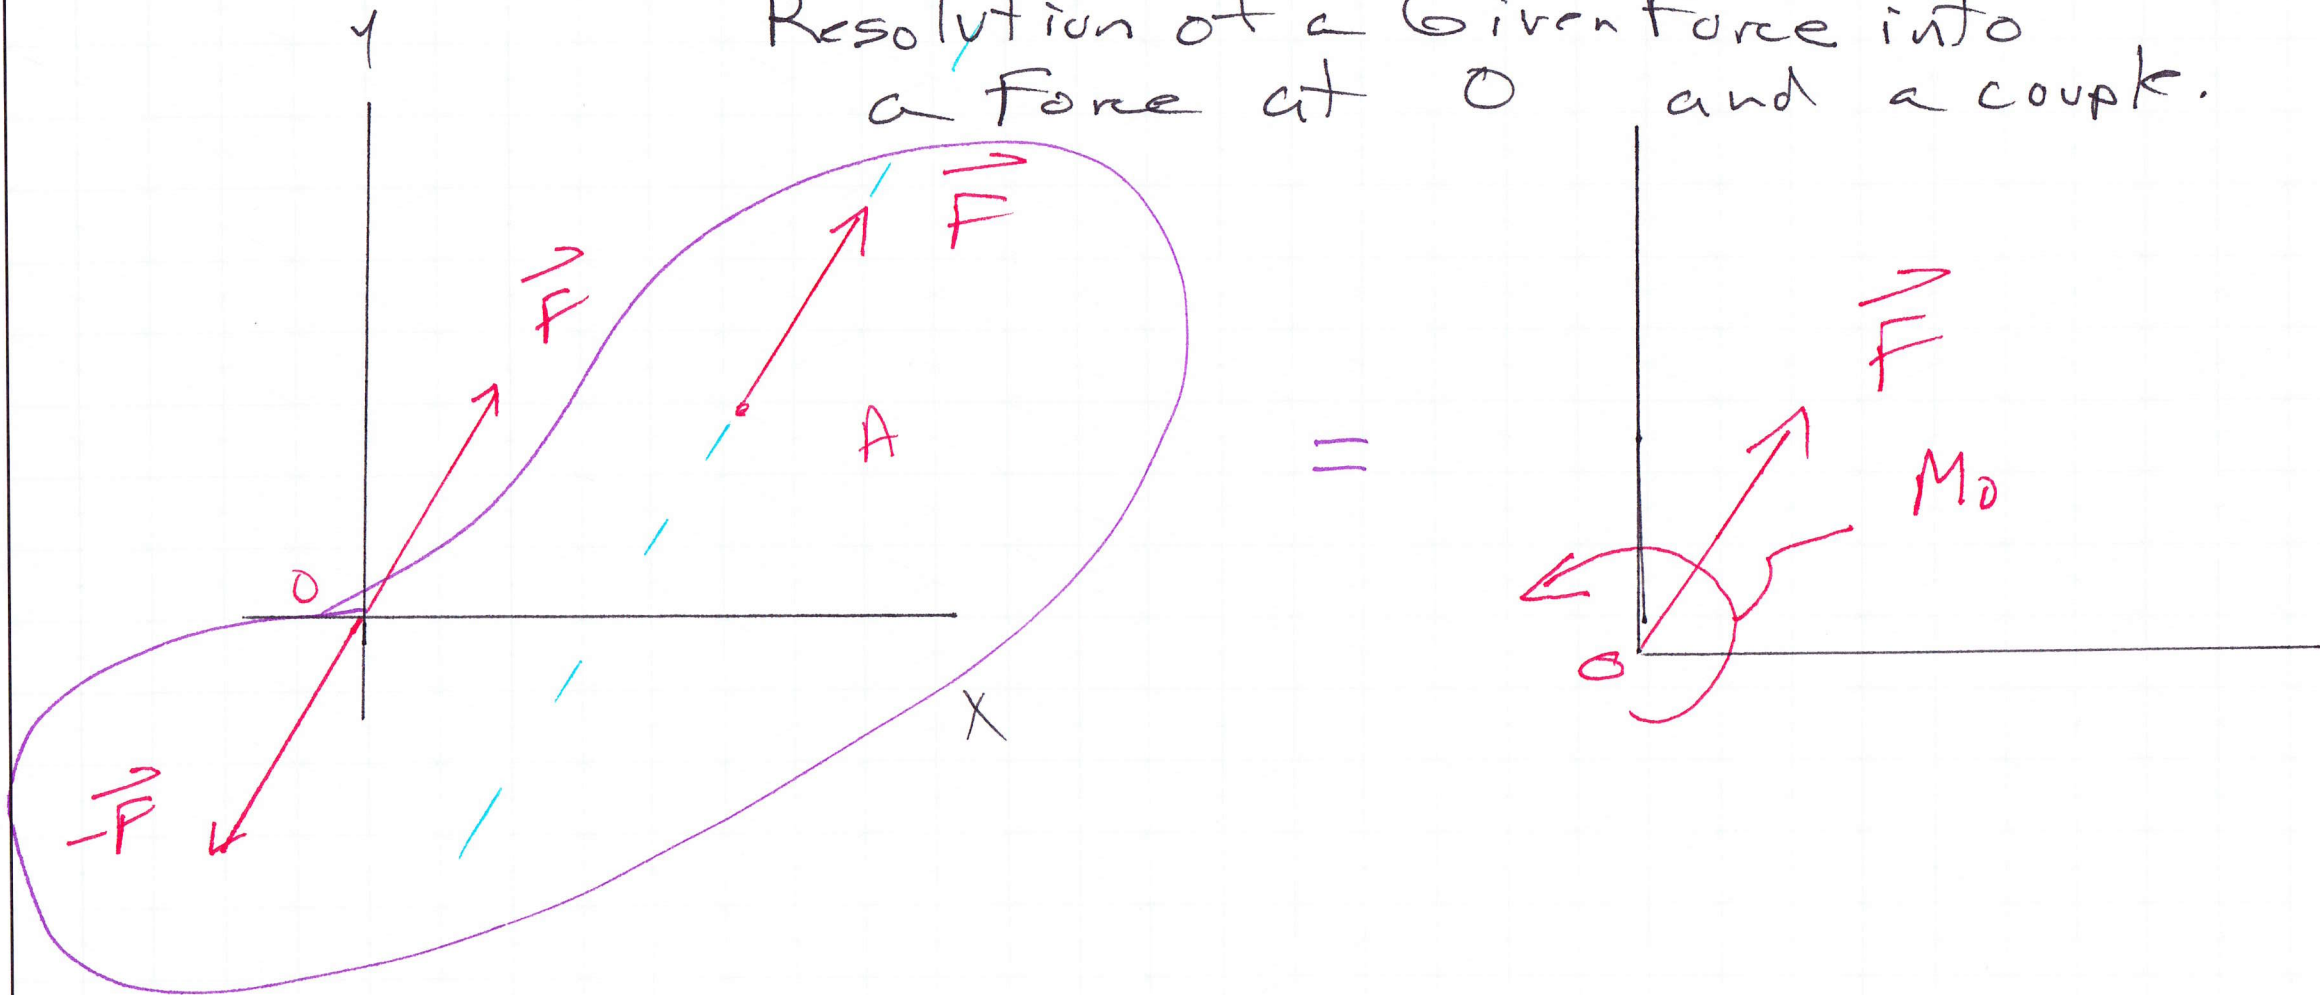 Resolution of a Given Force into
a Force at O and a couple.
Y
F
F
F
A
=
M₀
O
O
X
-F